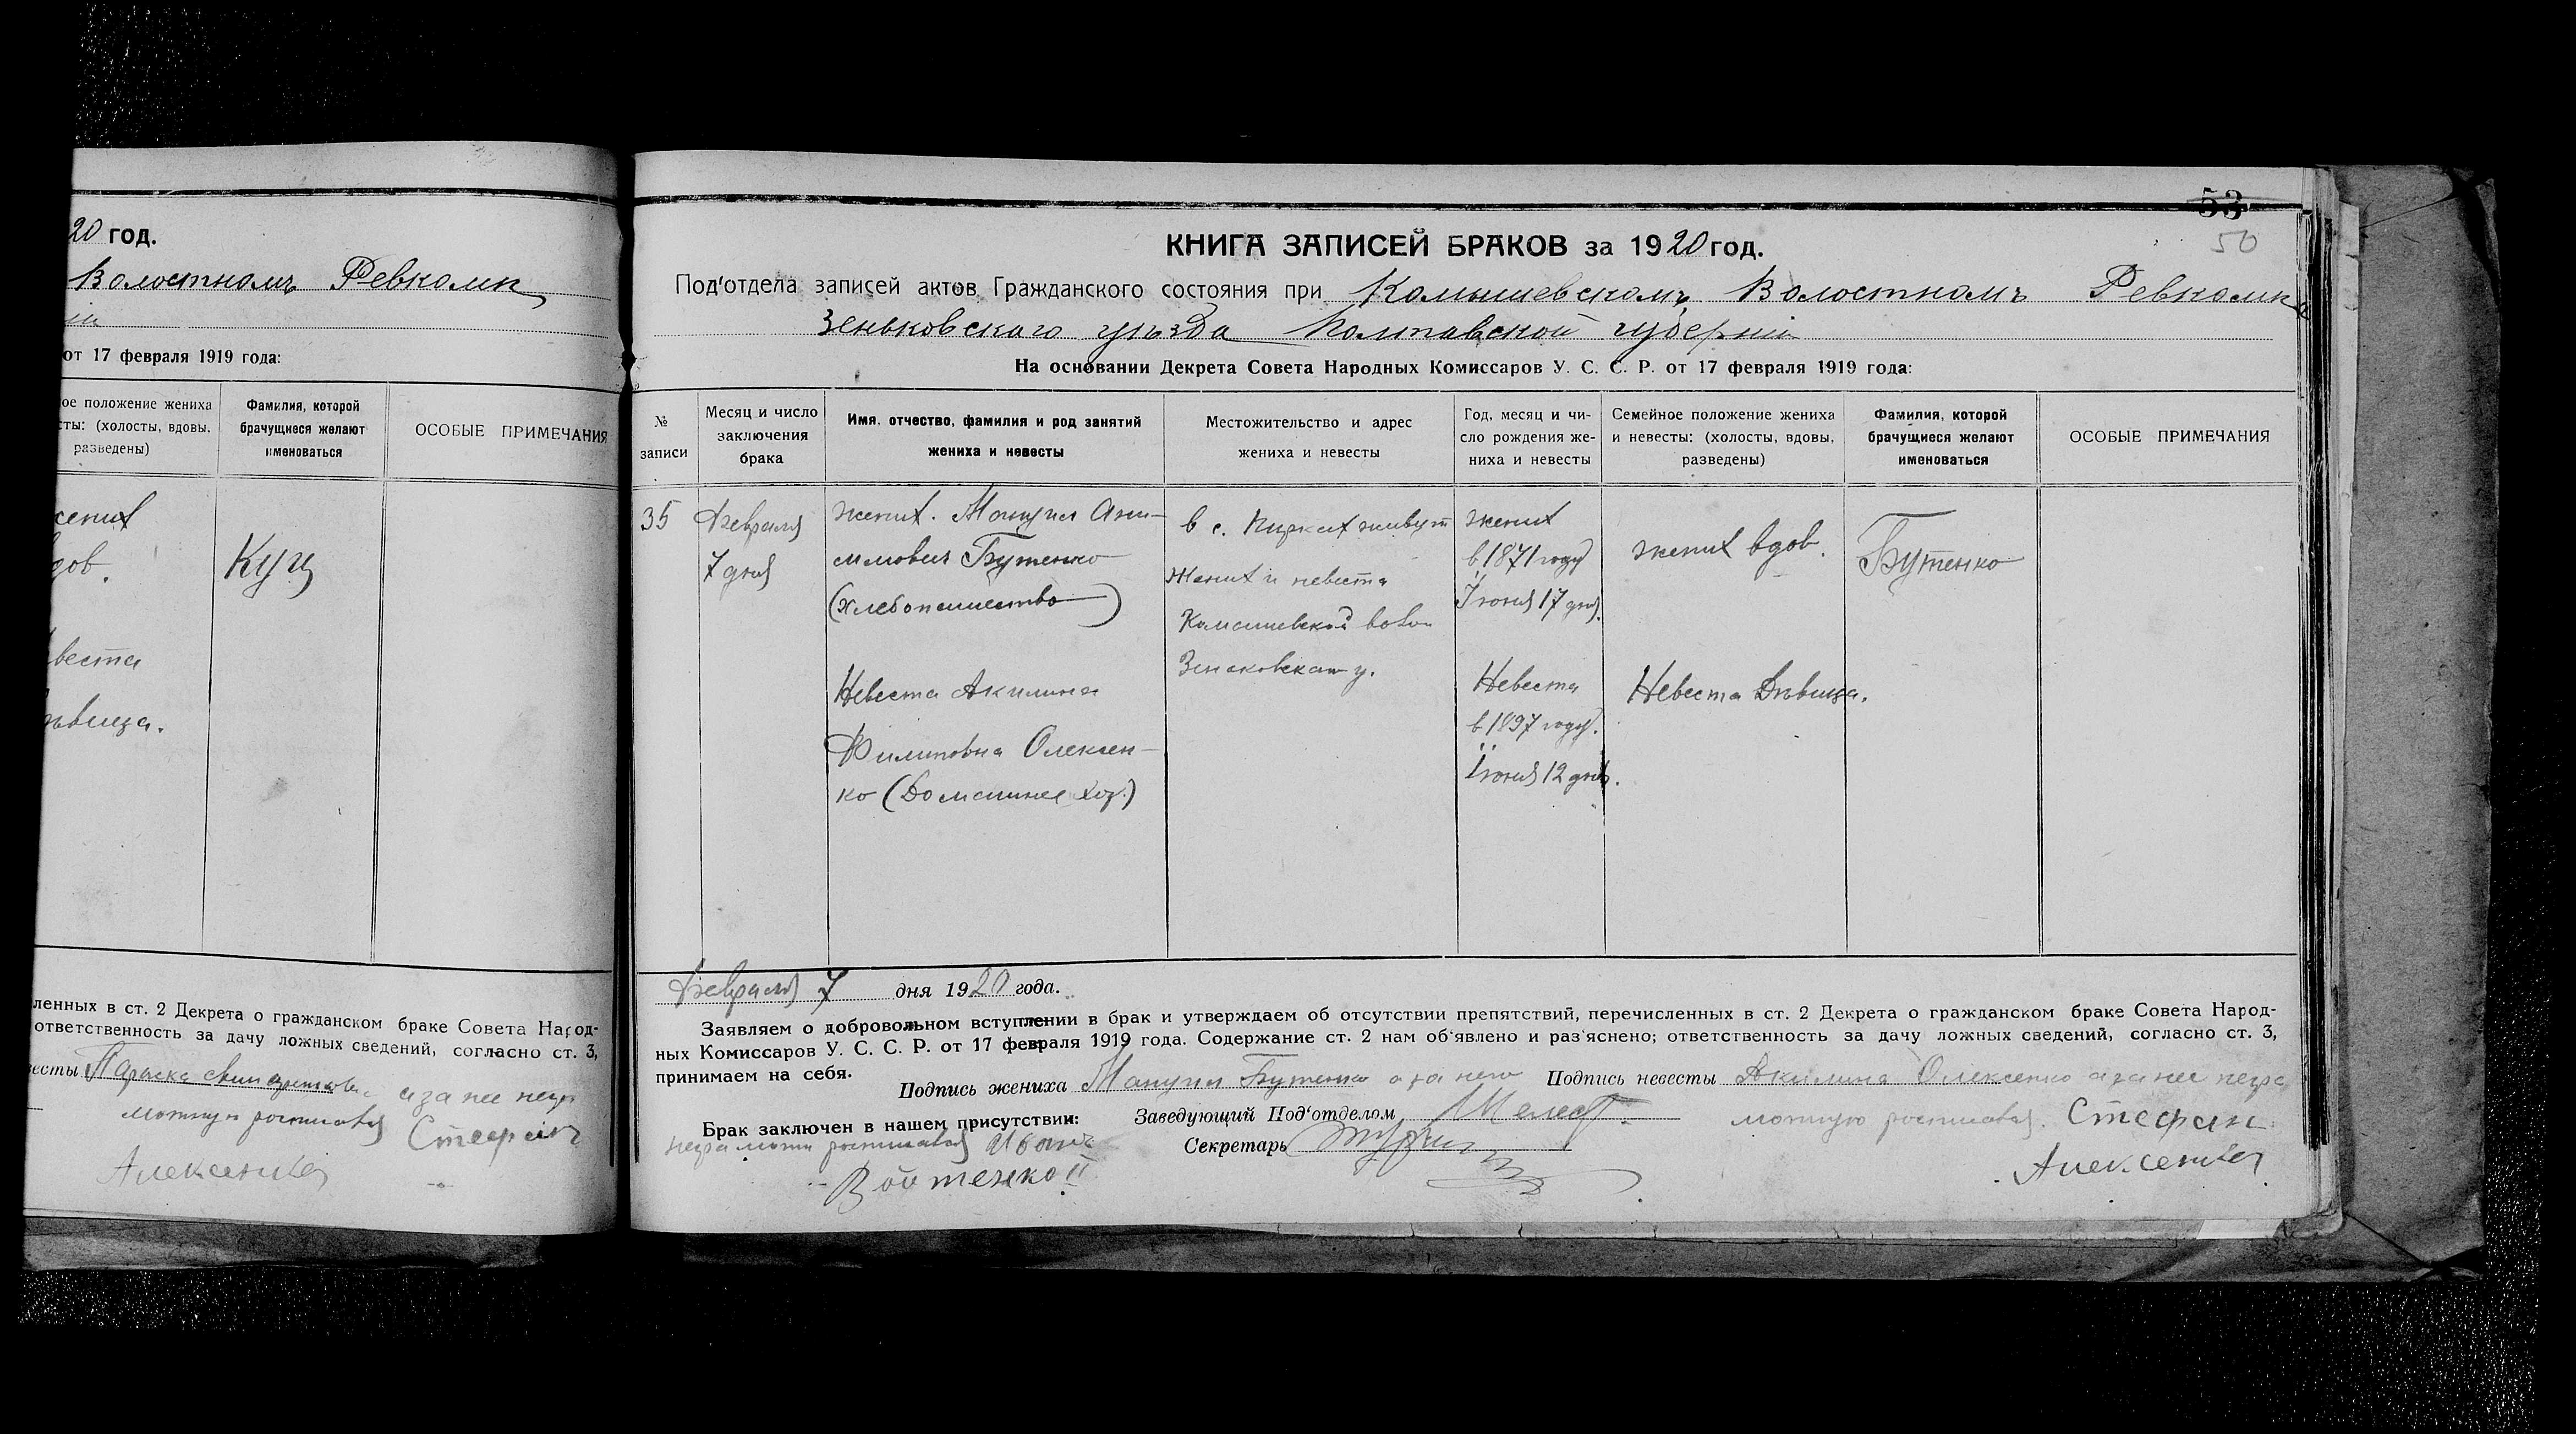 20 год.
Волостномъ Ревкомп
от 17 февраля 1919 года:
ое положение жениха
сты: (холосты, вдовы,
разведены)
Фамилия, которой
брачущиеся желают
именоваться
ОСОБЫЕ ПРИМЕЧАНИЯ
жених
вдов.
Куц
веста
ѣвица.
ленных в ст. 2 Декрета о гражданском браке Совета Народ-
ответственность за дачу ложных сведений, согласно ст. 3,
весты Параска а за нее негра
мотную росписався Стефанъ
Алексенко
53
50
КНИГА ЗАПИСЕЙ БРАКОВ за 1920 год.
Под'отдела записей актов Гражданского состояния при Комышевскомъ Волостномъ Ревкомѣ
Зеньковскаго уѣзда Полтавской губерніи
На основании Декрета Совета Народных Комиссаров У. С. С. Р. от 17 февраля 1919 года:
№
записи
Месяц и число
заключения
брака
Имя, отчество, фамилия и род занятий
жениха и невесты
Местожительство и адрес
жениха и невесты
Год, месяц и чи-
сло рождения же-
ниха и невесты
Семейное положение жениха
и невесты: (холосты, вдовы,
разведены)
Фамилия, которой
брачущиеся желают
именоваться
ОСОБЫЕ ПРИМЕЧАНИЯ
35
Февраля
7 дня
жених. Мануил Они-
симович Бутенко
(хлебопашество)
Невеста Акилина
Филиповна Олексен-
ко (Домашнее хоз.)
в с. Пирках живут
Жених и невеста
Комишевской вол.
Зеньковскаг у.
жених
в 1871 году
Іюня 17 дня.
Невеста
в 1897 году.
Іюня 12 дня.
жених вдов.
Невеста Дѣвица.
Бутенко
Февраля 7 дня 1920 года.
Заявляем о добровольном вступлении в брак и утверждаем об отсутствии препятствий, перечисленных в ст. 2 Декрета о гражданском браке Совета Народ-
ных Комиссаров У. С. С. Р. от 17 февраля 1919 года. Содержание ст. 2 нам об'явлено и раз'яснено; ответственность за дачу ложных сведений, согласно ст. 3,
принимаем на себя.
Подпись жениха Мануил Бутенко а за него
Подпись невесты Акилина Олексенко а за нее негра
мотную росписався. Стефан
Алексенко
Брак заключен в нашем присутствии:
Заведующий Под'отделом
Секретарь
неграмотн росписався Иванъ
Войтенко II